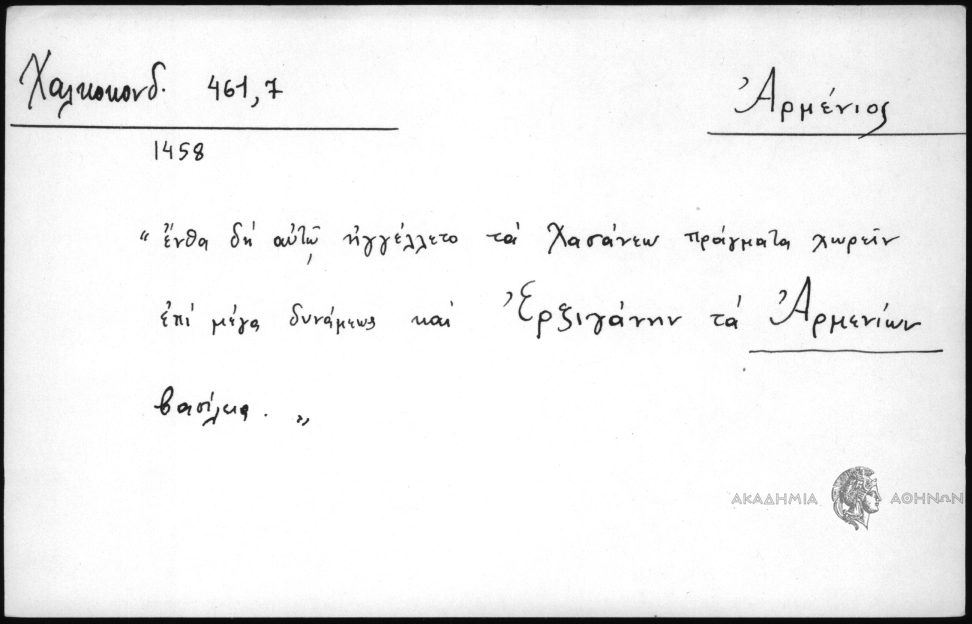 Χαλκοκονδ. 461,7
Ἀρμένιος
1458
“ ἔνθα δή αὐτῷ ἠγγέλλετο τά Χασάνεω πράγματα χωρεῖν
ἐπί μέγα δυνάμεως καί Ἐρζιγάνην τά Ἀρμενίων
βασίλεια. „
ΑΚΑΔΗΜΙΑ ΑΘΗΝΩΝ